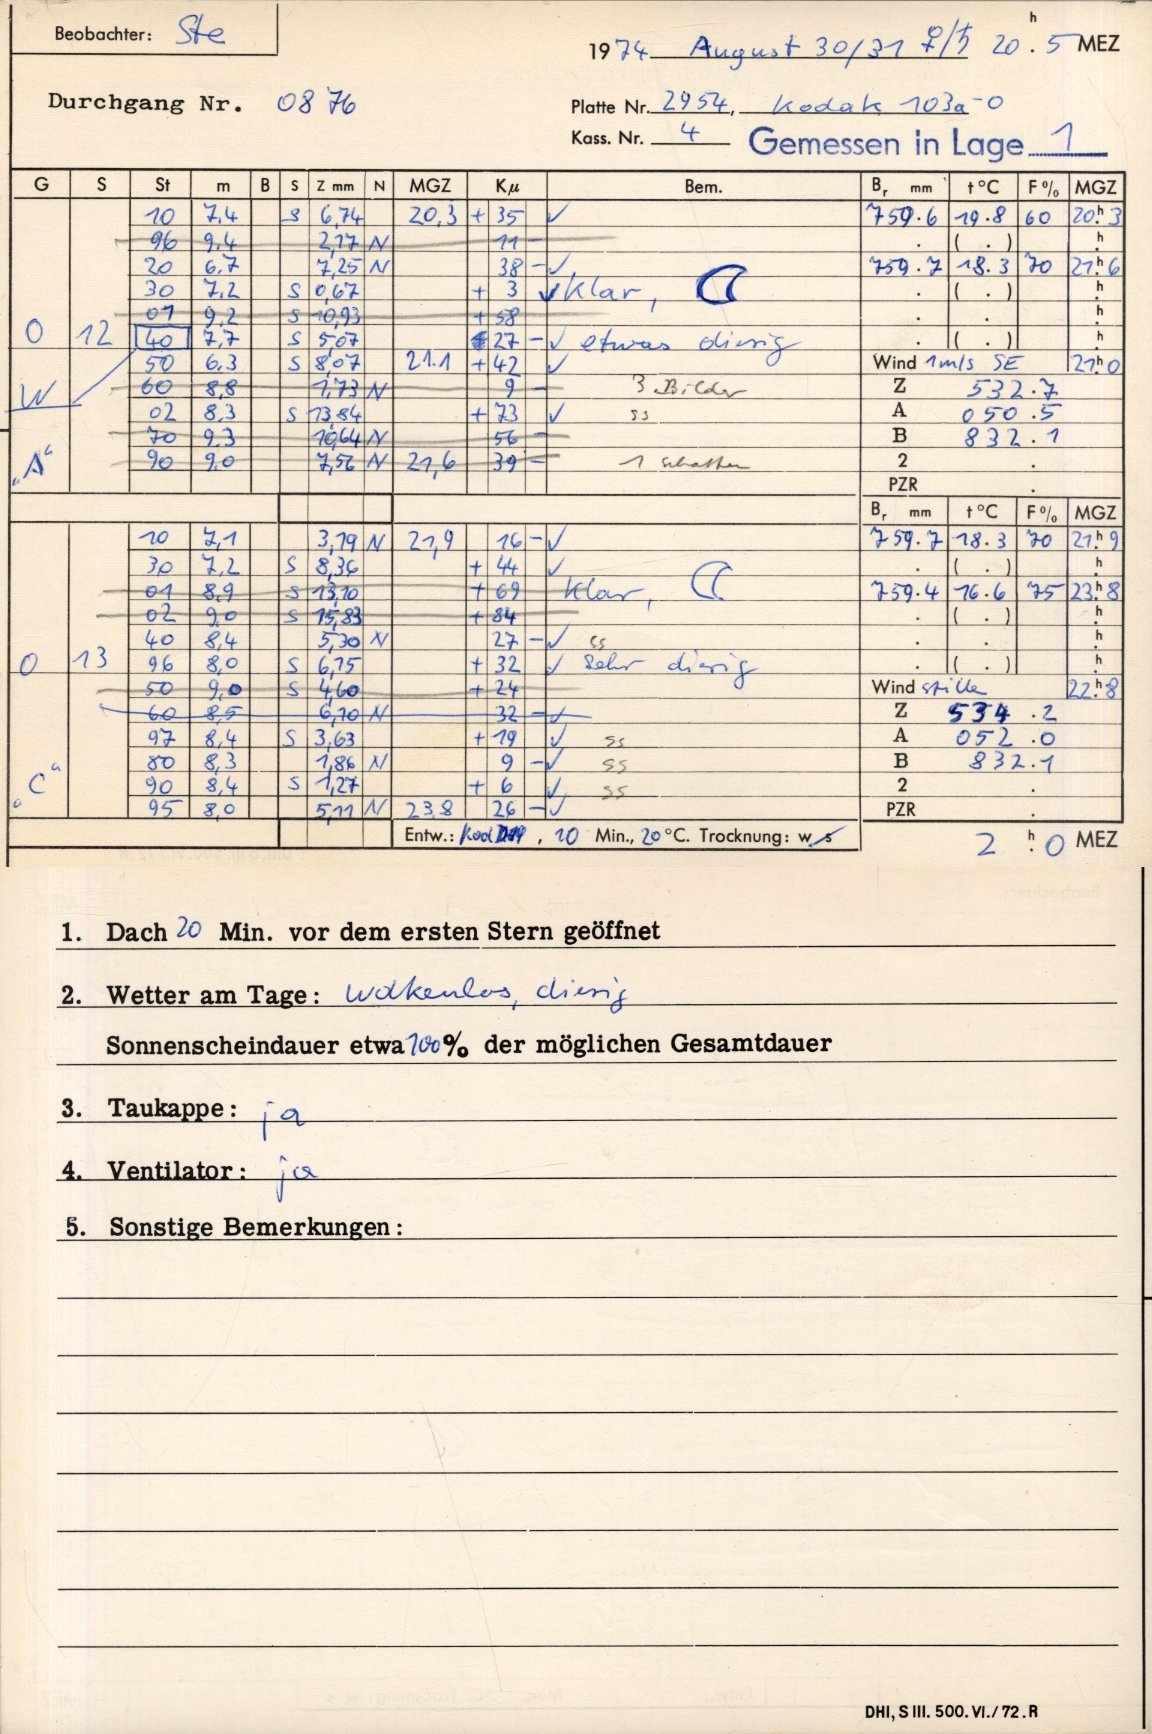 Beobachter: Ste
1974 August 30/31 ♀/♄ 20h.5 MEZ
Durchgang Nr. 0876
Platte Nr. 2954, Kodak 103a-O
Kass. Nr. 4 Gemessen in Lage 1
G S St m B S Z mm N MGZ Kμ Bem. Br mm t°C F% MGZ
10 7,4 S 6,74 20,3 + 35 ✓ 759.6 19.8 60 20h3
96 9,4 2,17 N 11 - . ( . ) h.
20 6,7 7,25 N 38 - ✓ 759.7 18.3 70 21h6
30 7,2 S 0,67 + 3 ✓ klar, . ( . ) h.
01 9,2 S 10,93 + 58 . . h.
O 12 40 7,7 S 5,07 27 - ✓ etwas diesig . ( . ) h.
50 6,3 S 8,07 21.1 + 42 ✓ Wind 1m/s SE 21h0
W 60 8,8 1,73 N 9 - 3 Bilder Z 532.7
02 8,3 S 13,84 + 73 ✓ ss A 050.5
70 9,3 10,64 N 56 - B 832.1
„A“ 90 9,0 7,56 N 21,6 39 - 1 Schatten 2 .
PZR .
Br mm t°C F% MGZ
10 7,1 3,19 N 21,9 16 - ✓ 759.7 18.3 70 21h9
30 7,2 S 8,36 + 44 ✓ . ( . ) h.
01 8,9 S 13,10 + 69 klar, 759.4 16.6 75 23h8
02 9,0 S 15,83 + 84 . ( . ) h.
40 8,4 5,30 N 27 - ✓ ss . . h.
O 13 96 8,0 S 6,15 + 32 ✓ sehr diesig . ( . ) h.
50 9,0 S 4,60 + 24 Wind stille 22h8
60 8,5 6,10 N 32 - ✓ Z 534.2
97 8,4 S 3,63 + 19 ✓ ss A 052.0
80 8,3 1,86 N 9 - ✓ ss B 832.1
„C“ 90 8,4 S 1,27 + 6 ✓ ss 2 .
95 8,0 5,11 N 23,8 26 - ✓ PZR .
Entw.: Kod , 10 Min., 20°C. Trocknung: w s 2h.0 MEZ
1. Dach 20 Min. vor dem ersten Stern geöffnet
2. Wetter am Tage: wolkenlos, diesig
Sonnenscheindauer etwa 100% der möglichen Gesamtdauer
3. Taukappe: ja
4. Ventilator: ja
5. Sonstige Bemerkungen:
DHI, S III. 500. VI./72. R